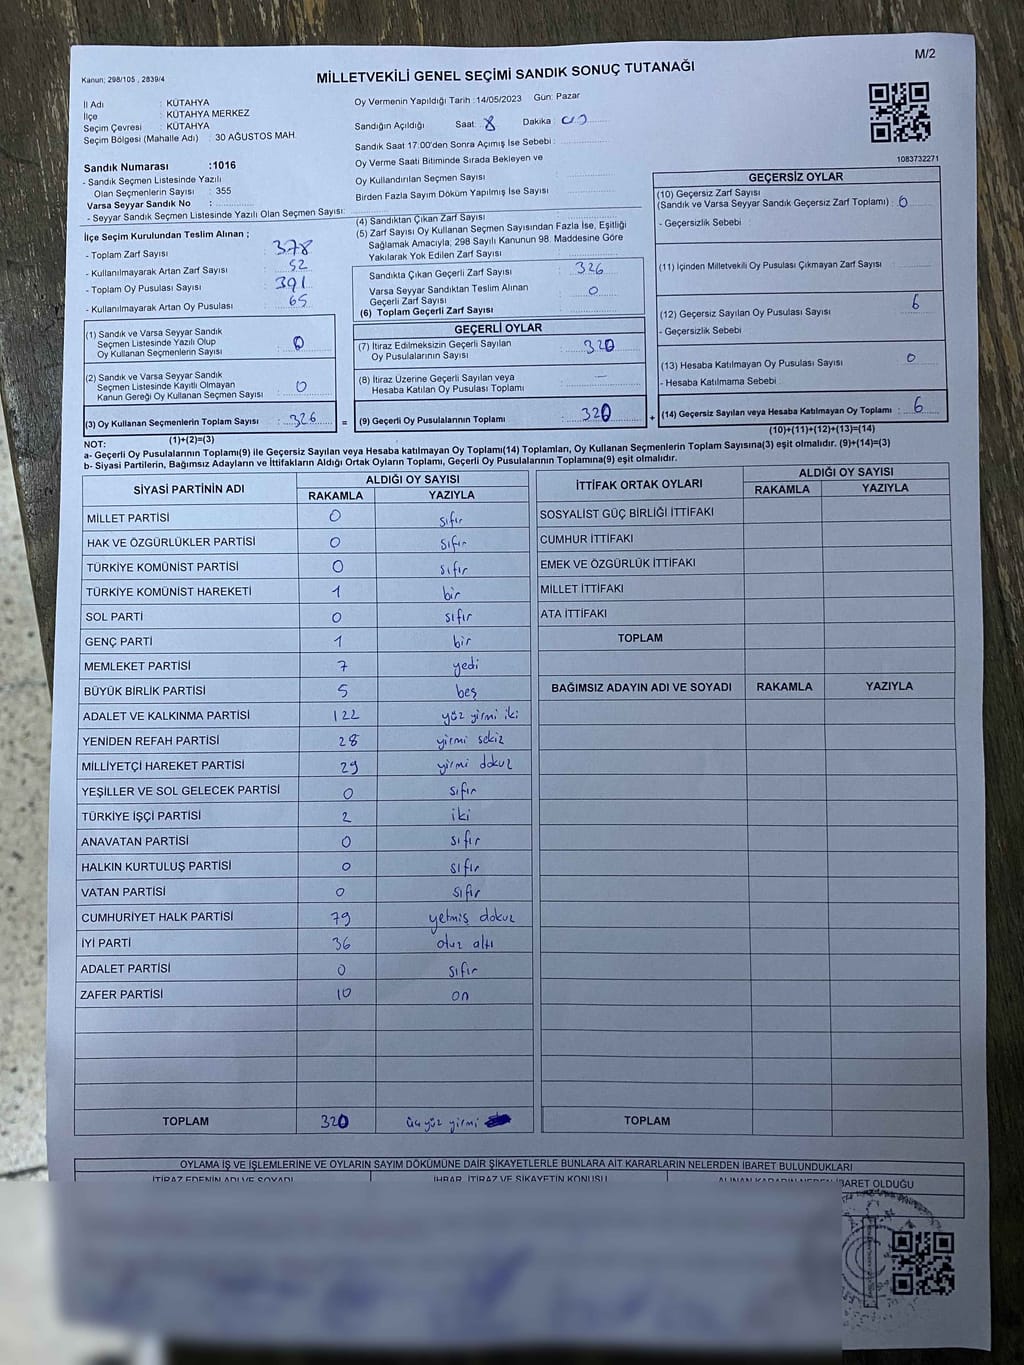 M/2
Kanun; 298/105 , 2839/4
MİLLETVEKİLİ GENEL SEÇİMİ SANDIK SONUÇ TUTANAĞI
İl Adı : KÜTAHYA
İlçe : KÜTAHYA MERKEZ
Seçim Çevresi : KÜTAHYA
Seçim Bölgesi (Mahalle Adı) : 30 AĞUSTOS MAH.
Sandık Numarası :1016
- Sandık Seçmen Listesinde Yazılı
Olan Seçmenlerin Sayısı : 355
Varsa Seyyar Sandık No :
- Seyyar Sandık Seçmen Listesinde Yazılı Olan Seçmen Sayısı:
Oy Vermenin Yapıldığı Tarih :14/05/2023 Gün: Pazar
Sandığın Açıldığı Saat: 8 Dakika :
Sandık Saat 17:00'den Sonra Açımış İse Sebebi :
Oy Verme Saati Bitiminde Sırada Bekleyen ve
Oy Kullandırılan Seçmen Sayısı
Birden Fazla Sayım Döküm Yapılmış İse Sayısı
1083732271
İlçe Seçim Kurulundan Teslim Alınan ;
- Toplam Zarf Sayısı : 378
- Kullanılmayarak Artan Zarf Sayısı : 52
- Toplam Oy Pusulası Sayısı : 391
- Kullanılmayarak Artan Oy Pusulası : 65
(1) Sandık ve Varsa Seyyar Sandık
Seçmen Listesinde Yazılı Olup
Oy Kullanan Seçmenlerin Sayısı : 0
(2) Sandık ve Varsa Seyyar Sandık
Seçmen Listesinde Kayıtlı Olmayan
Kanun Gereği Oy Kullanan Seçmen Sayısı : 0
(3) Oy Kullanan Seçmenlerin Toplam Sayısı : 326 =
(1)+(2)=(3)
(4) Sandıktan Çıkan Zarf Sayısı :
(5) Zarf Sayısı Oy Kullanan Seçmen Sayısından Fazla İse, Eşitliği
Sağlamak Amacıyla; 298 Sayılı Kanunun 98. Maddesine Göre
Yakılarak Yok Edilen Zarf Sayısı :
Sandıkta Çıkan Geçerli Zarf Sayısı : 326
Varsa Seyyar Sandıktan Teslim Alınan
Geçerli Zarf Sayısı : 0
(6) Toplam Geçerli Zarf Sayısı :
GEÇERLİ OYLAR
(7) İtiraz Edilmeksizin Geçerli Sayılan
Oy Pusulalarının Sayısı : 320
(8) İtiraz Üzerine Geçerli Sayılan veya
Hesaba Katılan Oy Pusulası Toplamı : —
(9) Geçerli Oy Pusulalarının Toplamı : 320 +
GEÇERSİZ OYLAR
(10) Geçersiz Zarf Sayısı
(Sandık ve Varsa Seyyar Sandık Geçersiz Zarf Toplamı) : 0
- Geçersizlik Sebebi :
(11) İçinden Milletvekili Oy Pusulası Çıkmayan Zarf Sayısı
(12) Geçersiz Sayılan Oy Pusulası Sayısı : 6
- Geçersizlik Sebebi :
(13) Hesaba Katılmayan Oy Pusulası Sayısı : 0
- Hesaba Katılmama Sebebi :
(14) Geçersiz Sayılan veya Hesaba Katılmayan Oy Toplamı : 6
(10)+(11)+(12)+(13)=(14)
NOT:
a- Geçerli Oy Pusulalarının Toplamı(9) ile Geçersiz Sayılan veya Hesaba katılmayan Oy Toplamı(14) Toplamları, Oy Kullanan Seçmenlerin Toplam Sayısına(3) eşit olmalıdır. (9)+(14)=(3)
b- Siyasi Partilerin, Bağımsız Adayların ve İttifakların Aldığı Ortak Oyların Toplamı, Geçerli Oy Pusulalarının Toplamına(9) eşit olmalıdır.
SİYASİ PARTİNİN ADI ALDIĞI OY SAYISI
RAKAMLA YAZIYLA
MİLLET PARTİSİ 0 sıfır
HAK VE ÖZGÜRLÜKLER PARTİSİ 0 sıfır
TÜRKİYE KOMÜNİST PARTİSİ 0 sıfır
TÜRKİYE KOMÜNİST HAREKETİ 1 bir
SOL PARTİ 0 sıfır
GENÇ PARTİ 1 bir
MEMLEKET PARTİSİ 7 yedi
BÜYÜK BİRLİK PARTİSİ 5 beş
ADALET VE KALKINMA PARTİSİ 122 yüz yirmi iki
YENİDEN REFAH PARTİSİ 28 yirmi sekiz
MİLLİYETÇİ HAREKET PARTİSİ 29 yirmi dokuz
YEŞİLLER VE SOL GELECEK PARTİSİ 0 sıfır
TÜRKİYE İŞÇİ PARTİSİ 2 iki
ANAVATAN PARTİSİ 0 sıfır
HALKIN KURTULUŞ PARTİSİ 0 sıfır
VATAN PARTİSİ 0 sıfır
CUMHURİYET HALK PARTİSİ 79 yetmiş dokuz
İYİ PARTİ 36 otuz altı
ADALET PARTİSİ 0 sıfır
ZAFER PARTİSİ 10 on
TOPLAM 320 üç yüz yirmi
İTTİFAK ORTAK OYLARI ALDIĞI OY SAYISI
RAKAMLA YAZIYLA
SOSYALİST GÜÇ BİRLİĞİ İTTİFAKI
CUMHUR İTTİFAKI
EMEK VE ÖZGÜRLÜK İTTİFAKI
MİLLET İTTİFAKI
ATA İTTİFAKI
TOPLAM
BAĞIMSIZ ADAYIN ADI VE SOYADI RAKAMLA YAZIYLA
TOPLAM
OYLAMA İŞ VE İŞLEMLERİNE VE OYLARIN SAYIM DÖKÜMÜNE DAİR ŞİKAYETLERLE BUNLARA AİT KARARLARIN NELERDEN İBARET BULUNDUKLARI
İTİRAZ EDENİN ADI VE SOYADI İHBAR, İTİRAZ VE ŞİKAYETİN KONUSU ALINAN KARARIN NEDEN İBARET OLDUĞU